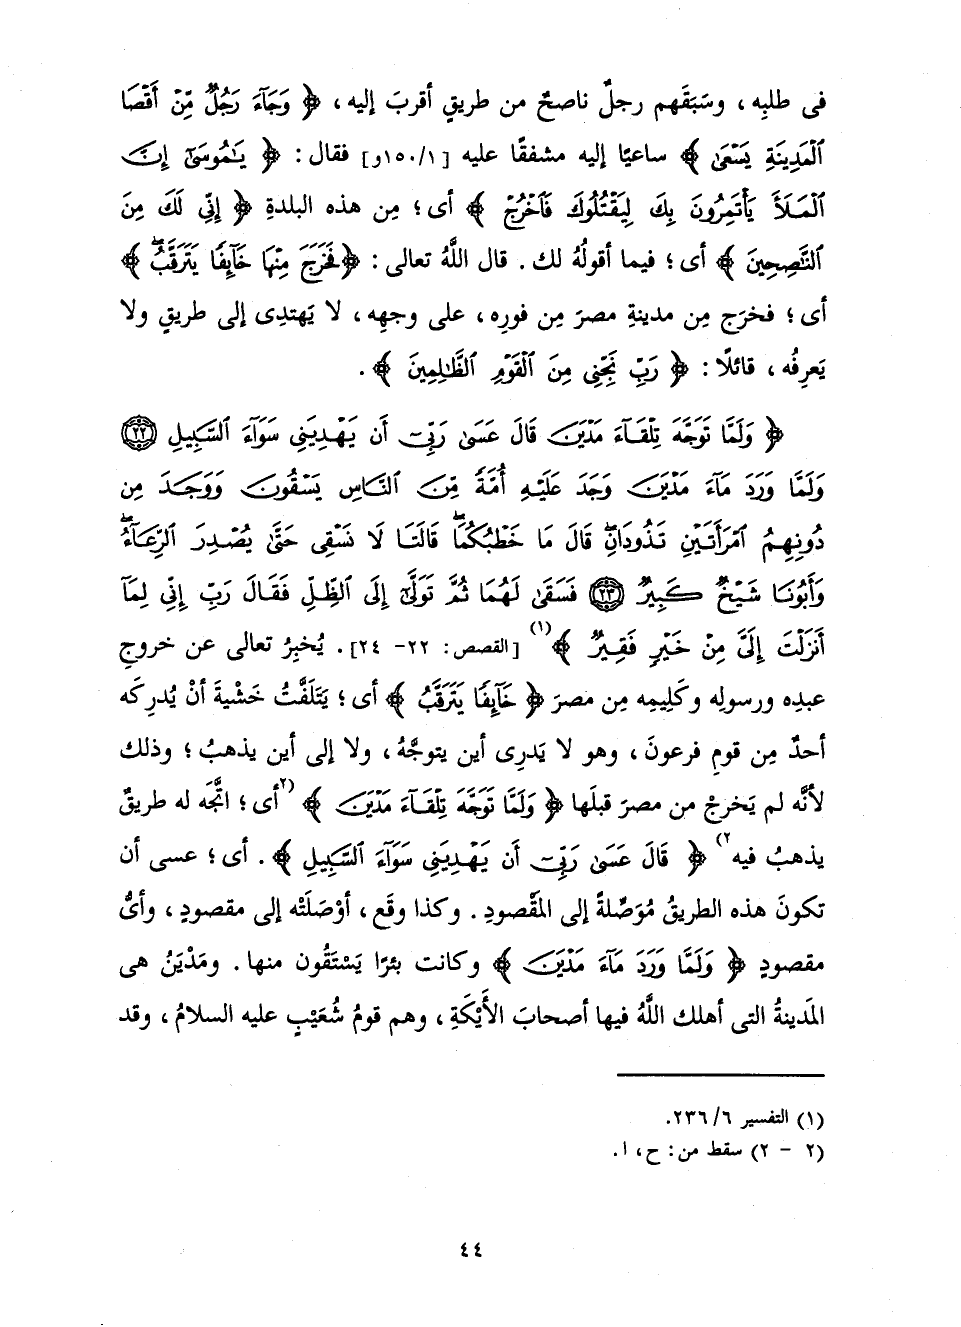 فى طلبِه ، وسَبَقَهم رجلٌ ناصحٌ من طريقٍ أقربَ إليه ، ﴿ وَجَآءَ رَجُلٌ مِّنْ أَقْصَا
ٱلْمَدِينَةِ يَسْعَىٰ ﴾ ساعيًا إليه مشفقًا عليه [١/ ١٥٠و] فقال : ﴿ يَـٰمُوسَىٰٓ إِنَّ
ٱلْمَلَأَ يَأْتَمِرُونَ بِكَ لِيَقْتُلُوكَ فَٱخْرُجْ ﴾ أى ؛ مِن هذه البلدةِ ﴿ إِنِّى لَكَ مِنَ
ٱلنَّـٰصِحِينَ ﴾ أى ؛ فيما أقولُهُ لك . قال اللَّهُ تعالى : ﴿ فَخَرَجَ مِنْهَا خَآئِفًا يَتَرَقَّبُۖ ﴾
أى ؛ فخرَج مِن مدينةِ مصرَ مِن فورِه ، على وجهِه ، لا يَهتدِى إلى طريقٍ ولا
يَعرِفُه ، قائلًا : ﴿ رَبِّ نَجِّنِى مِنَ ٱلْقَوْمِ ٱلظَّـٰلِمِينَ ﴾ .
﴿ وَلَمَّا تَوَجَّهَ تِلْقَآءَ مَدْيَنَ قَالَ عَسَىٰ رَبِّىٓ أَن يَهْدِيَنِى سَوَآءَ ٱلسَّبِيلِ ٢٢
وَلَمَّا وَرَدَ مَآءَ مَدْيَنَ وَجَدَ عَلَيْهِ أُمَّةً مِّنَ ٱلنَّاسِ يَسْقُونَ وَوَجَدَ مِن
دُونِهِمُ ٱمْرَأَتَيْنِ تَذُودَانِۖ قَالَ مَا خَطْبُكُمَاۖ قَالَتَا لَا نَسْقِى حَتَّىٰ يُصْدِرَ ٱلرِّعَآءُۖ
وَأَبُونَا شَيْخٌ كَبِيرٌ ٢٣ فَسَقَىٰ لَهُمَا ثُمَّ تَوَلَّىٰٓ إِلَى ٱلظِّلِّ فَقَالَ رَبِّ إِنِّى لِمَآ
أَنزَلْتَ إِلَىَّ مِنْ خَيْرٍ فَقِيرٌ ﴾(١) [القصص : ٢٢- ٢٤] . يُخبِرُ تعالى عن خروجِ
عبدِه ورسولِه وكَلِيمِه مِن مصرَ ﴿ خَآئِفًا يَتَرَقَّبُ ﴾ أى ؛ يَتَلَفَّتُ خَشْيةَ أنْ يُدرِكَه
أحدٌ مِن قومِ فرعونَ ، وهو لا يَدرِى أين يتوجَّهُ ، ولا إلى أين يذهبُ ؛ وذلك
لأنَّه لم يَخرجْ من مصرَ قبلَها ﴿ وَلَمَّا تَوَجَّهَ تِلْقَآءَ مَدْيَنَ ﴾ (٢أى ؛ اتَّجَه له طريقٌ
يذهبُ فيه٢) ﴿ قَالَ عَسَىٰ رَبِّىٓ أَن يَهْدِيَنِى سَوَآءَ ٱلسَّبِيلِ ﴾ . أى ؛ عسى أن
تكونَ هذه الطريقُ مُوَصِّلةً إلى المَقْصودِ . وكذا وقَع ، أوْصَلَتْه إلى مقصودٍ ، وأىُّ
مقصودٍ ﴿ وَلَمَّا وَرَدَ مَآءَ مَدْيَنَ ﴾ وكانت بئرًا يَسْتَقُون منها . ومَدْيَنُ هى
المَدينةُ التى أهلك اللَّهُ فيها أصحابَ الأَيْكَةِ ، وهم قومُ شُعَيْبٍ عليه السلامُ ، وقد
(١) التفسير ٦/ ٢٣٦.
(٢ - ٢) سقط من : ح ، ا .
٤٤